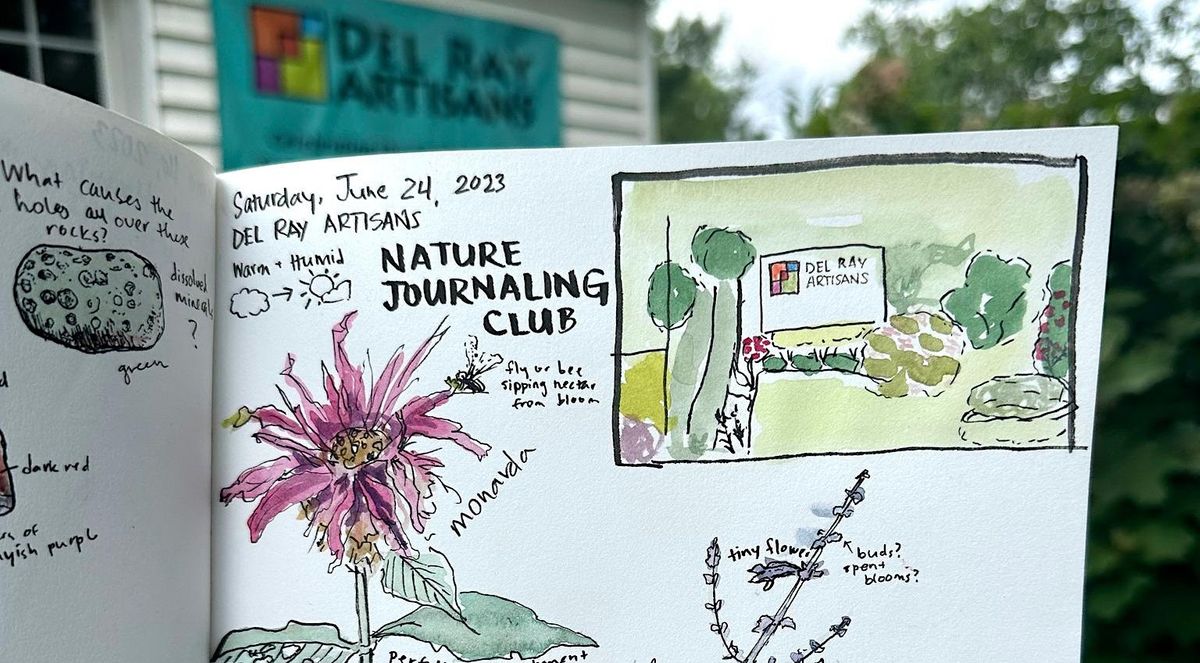 DEL RAY
ARTISANS
What causes the
holes all over these
rocks?
dissolved
minerals
?
green
dark red
Saturday, June 24, 2023
DEL RAY ARTISANS
Warm + Humid
NATURE
JOURNALING
CLUB
fly or bee
sipping nectar
from bloom
monarda
DEL RAY
ARTISANS
tiny flower
buds?
spent
blooms?